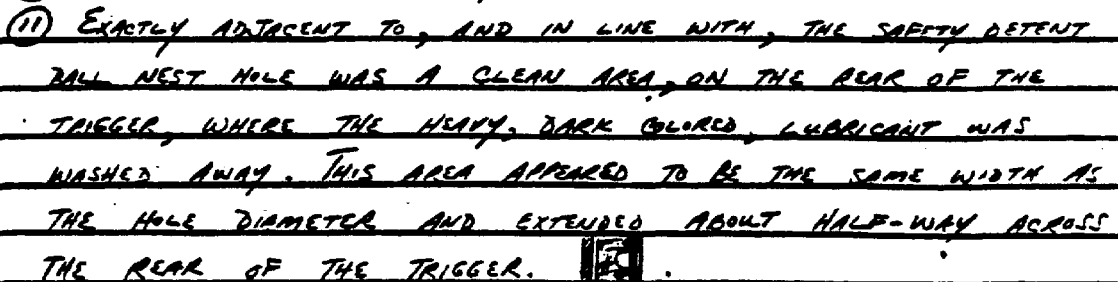 (11) EXACTLY ADJACENT TO, AND IN LINE WITH, THE SAFETY DETENT
BALL NEST HOLE WAS A CLEAN AREA, ON THE REAR OF THE
TRIGGER, WHERE THE HEAVY, DARK COLORED, LUBRICANT WAS
WASHED AWAY. THIS AREA APPEARED TO BE THE SAME WIDTH AS
THE HOLE DIAMETER AND EXTENDED ABOUT HALF-WAY ACROSS
THE REAR OF THE TRIGGER.